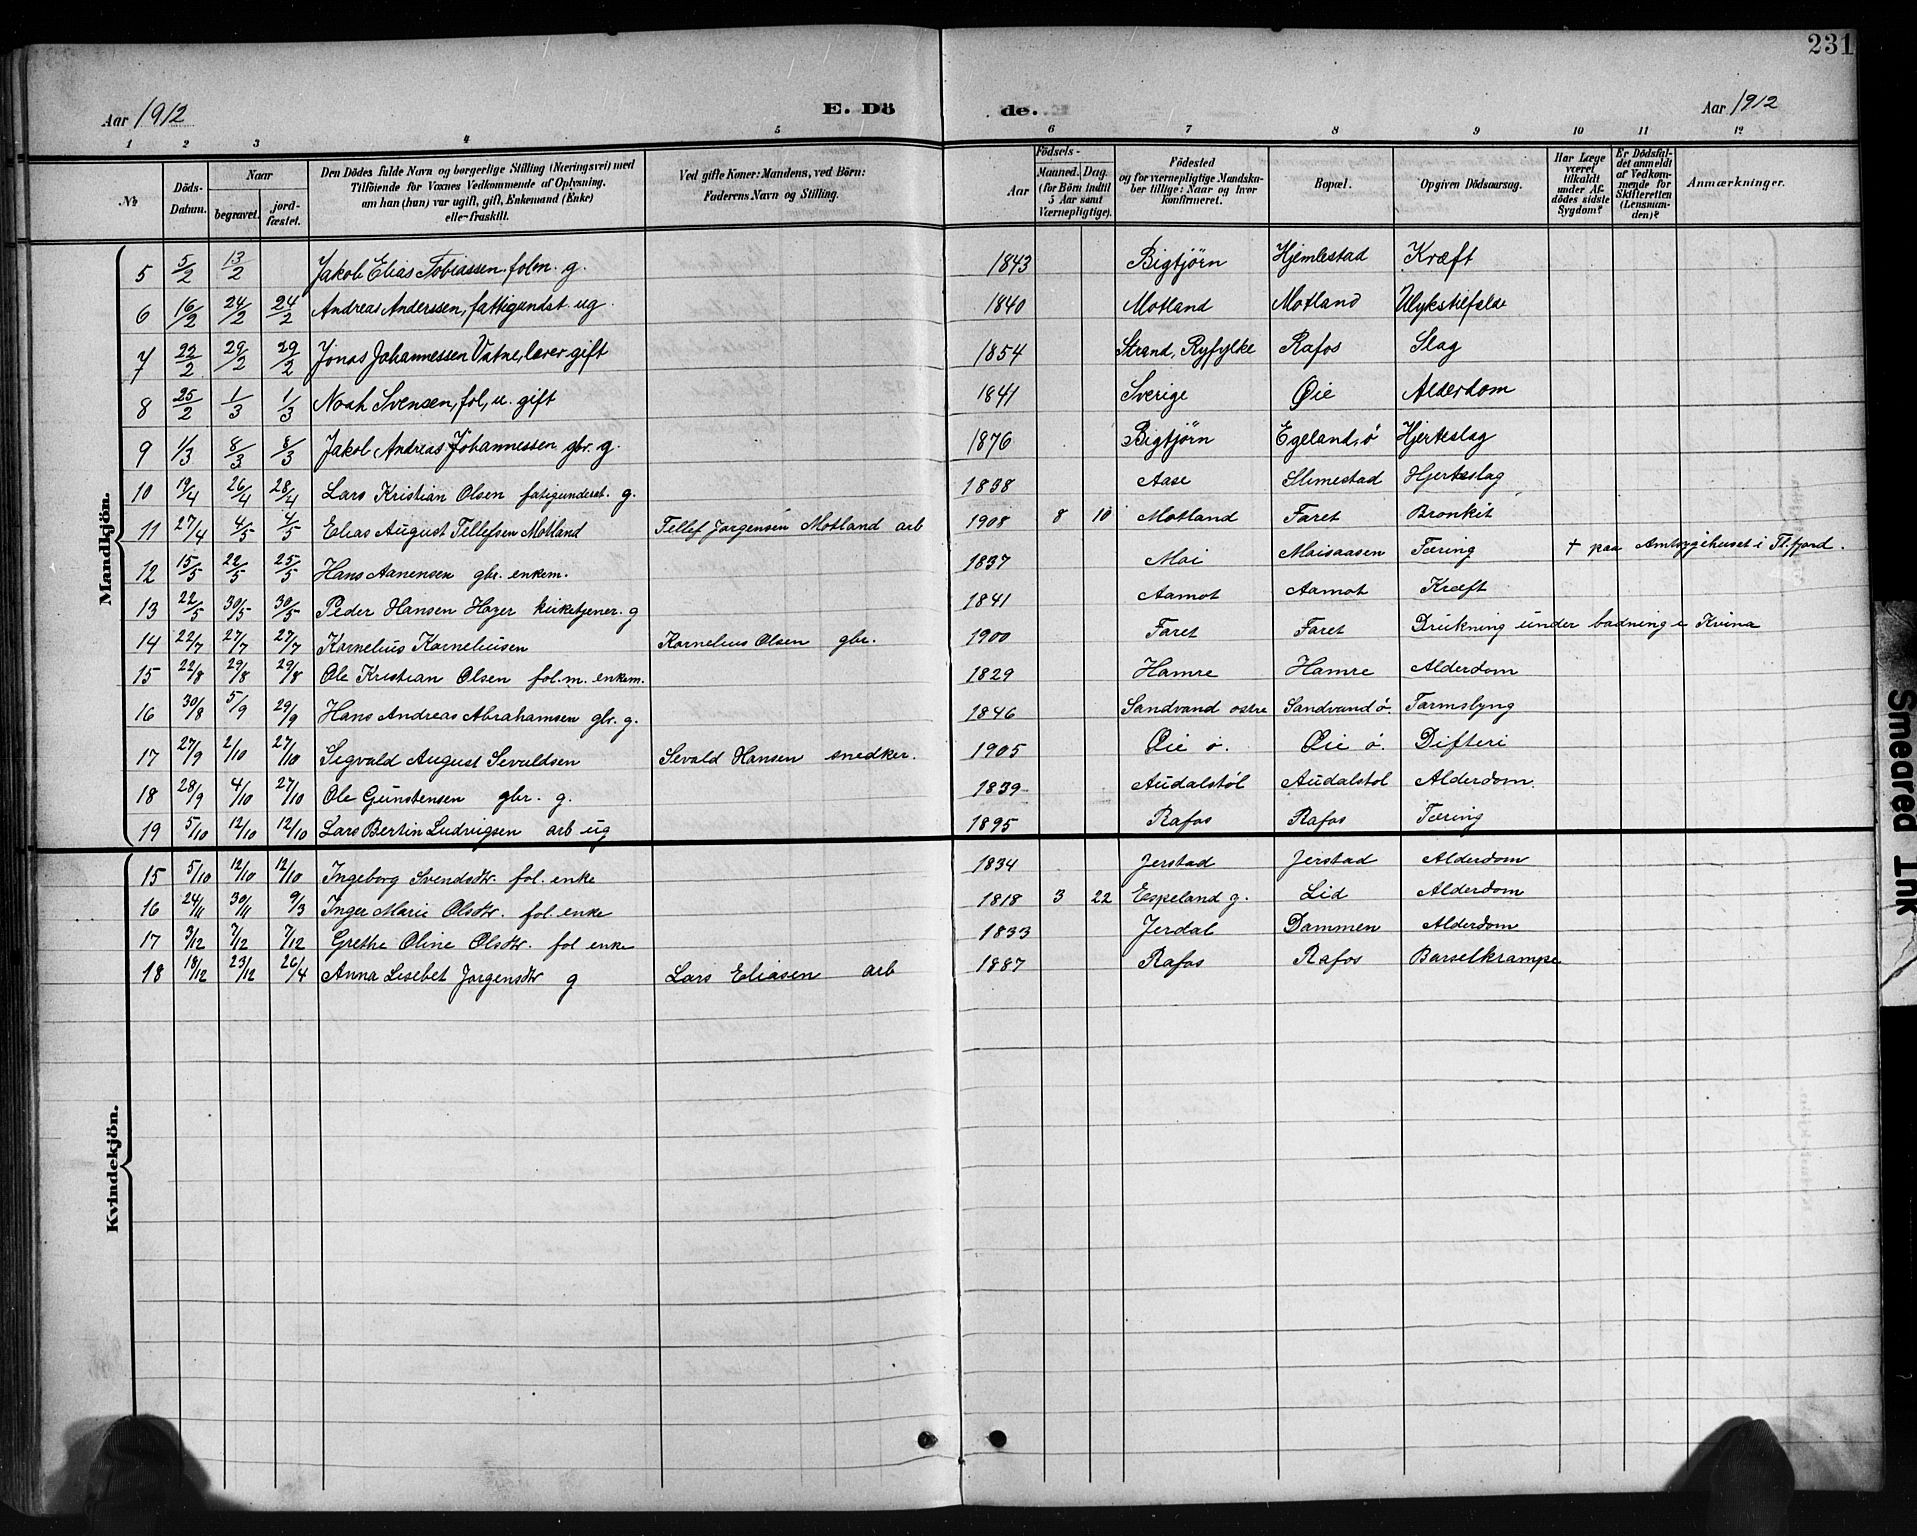 231
Aar 1912 E. Dö de. Aar 1912
1 2 3 4 5 6 7 8 9 10 11 12
No
Döds-Datum.
Naar
begravet.
jord-fæstet.
Den Dödes fulde Navn og borgerlige Stilling (Næringsvei) med Tilföiende for Voxnes Vedkommende af Oplysning, om han (hun) var ugift, gift, Enkemand (Enke) eller fraskilt.
Ved gifte Koner: Mandens, ved Börn: Faderens Navn og Stilling.
Födsels-
Aar
Maaned. Dag. (for Börn indtil 5 Aar samt Værnepligtige).
Födested og for værnepligtige Mandskaber tillige: Naar og hvor konfirmeret.
Bopæl.
Opgiven Dödsaarsag.
Har Læge været tilkaldt under Afdödes sidste Sygdom?
Er Dödsfaldet anmeldt af Vedkommende for Skifteretten (Lensmanden)?
Anmærkninger.
Mandkjön.
5 5/2 13/2 Jakob Elias Tobiassen. folm. g. 1843 Bigtjörn Hjemlestad Kræft
6 16/2 24/2 24/2 Andreas Anderssen, fattigundst. ug. 1840 Motland Motland Ulykstilfælde
7 22/2 29/2 29/2 Jonas Johannessen Vatne, lærer gift 1854 Strand, Ryfylke Rafos Slag
8 25/2 1/3 1/3 Noah Svensen, fol, u. gift 1841 Sverige Øie Alderdom
9 1/3 8/3 8/3 Jakob Andreas Johannessen gbr. g. 1876 Bigtjörn Egeland, ö Hjerteslag
10 19/4 26/4 28/4 Lars Kristian Olsen fatigunderst. g. 1838 Aase Slimestad Hjerteslag
11 27/4 4/5 4/5 Elias August Tellefsen Motland Tellef Jorgensen Motland arb 1908 8 10 Motland Faret Bronkit
12 15/5 22/5 25/5 Hans Aanensen gbr. enkem. 1837 Moi Moisaasen Tæring † paa Amtsygehuset i Fl.fjord.
13 22/5 30/5 30/5 Peder Hansen Høyer kirketjener. g 1841 Aamot Aamot Kræft
14 22/7 27/7 27/7 Kornelius Korneliusen Kornelius Olsen gbr. 1900 Faret Faret Drukning under badning i Kvina
15 22/8 29/8 29/8 Ole Kristian Olsen fol.m. enkem. 1829 Hamre Hamre Alderdom
16 30/8 5/9 29/9 Hans Andreas Abrahamsen gbr. g. 1846 Sandvand ostre Sandvand ö. Tarmslyng
17 27/9 2/10 27/10 Sigvald August Sevaldsen Sevald Hansen snedker. 1905 Øie ö. Øie ö. Difteri
18 28/9 4/10 27/10 Ole Gunstensen gbr. g. 1839 Audalstöl Audalstöl Alderdom.
19 5/10 12/10 12/10 Lars Bertin Ludvigsen arb ug 1895 Rafos Rafos Tæring
Kvindekjön.
15 5/10 12/10 12/10 Ingeborg Svendsdtr. fol. enke 1834 Jerstad Jerstad Alderdom
16 24/11 30/11 9/3 Inger Marie Olsdtr. fol. enke 1818 3 22 Espeland g. Lid Alderdom
17 3/12 7/12 7/12 Grethe Oline Olsdtr. fol enke 1833 Jerdal Dammen Alderdom
18 18/12 23/12 26/4 Anna Lisebet Jorgensdtr g Lars Eliasen arb 1887 Rafos Rafos Barselkrampe
Smeared Ink